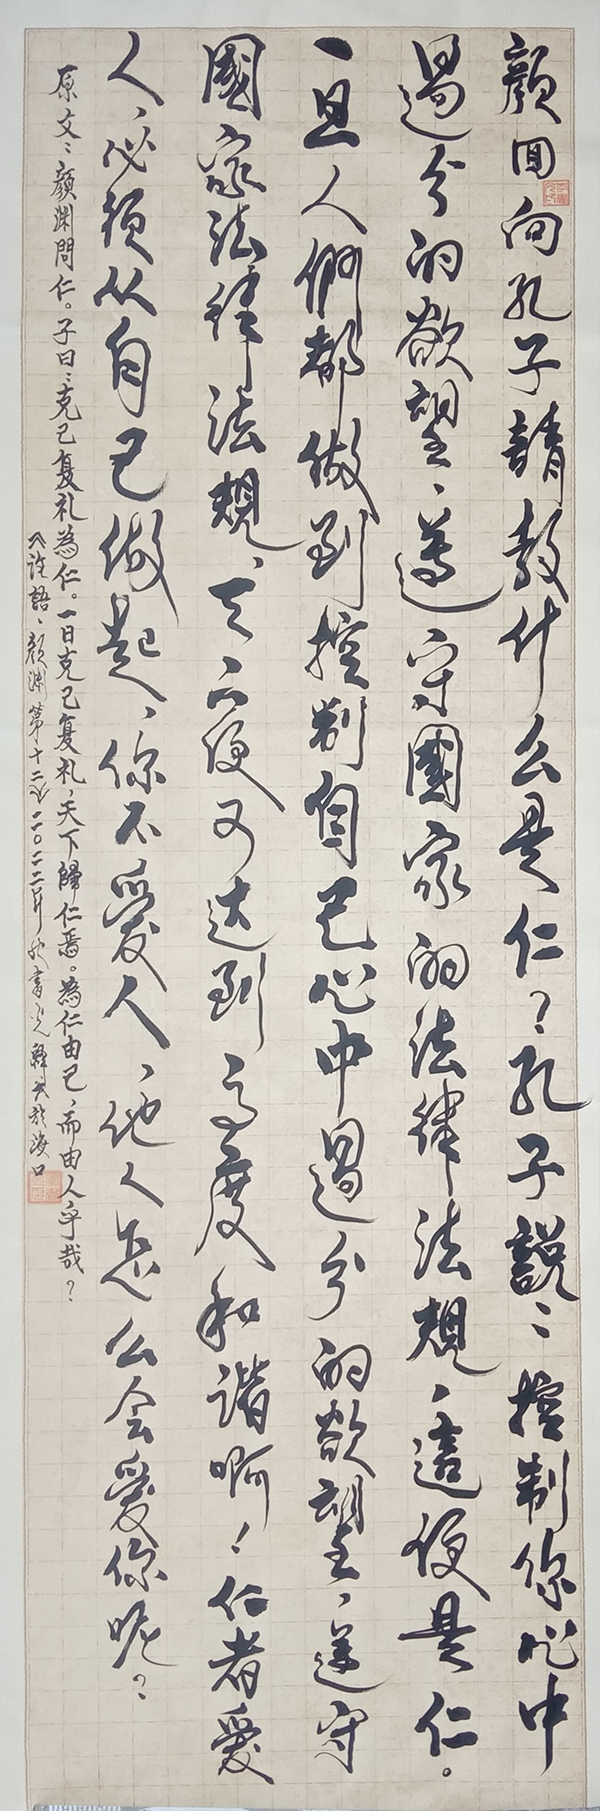 顔回向孔子請教什么是仁？孔子説：控制你心中
過分的欲望、遵守國家的法律法規、這便是仁。
一旦人們都做到控制自己心中過分的欲望、遵守
國家法律法規、天下便可達到高度和諧啊！仁者愛
人、必須从自己做起、你不愛人、他人怎么会愛你呢？
原文：顔渊問仁。子曰：克己复礼為仁。一日克己复礼，天下歸仁焉。為仁由己，而由人乎哉？
论語、顔渊第十二 二〇二二年秋書 於海口